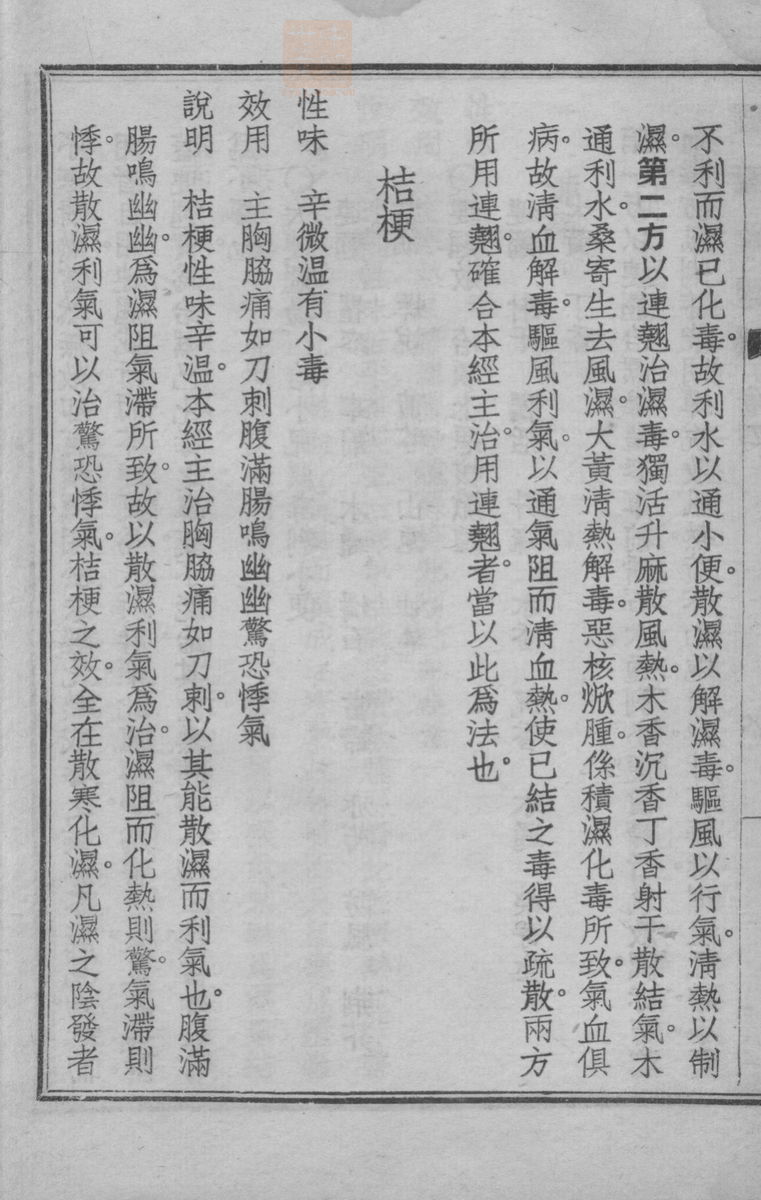 不利而濕已化毒。故利水以通小便。散濕以解濕毒。驅風以行氣。淸熱以制
濕。第二方以連翹治濕毒。獨活升麻散風熱。木香沉香丁香射干散結氣。木
通利水。桑寄生去風濕。大黃淸熱解毒。惡核焮腫。係積濕化毒所致。氣血俱
病。故淸血解毒。驅風利氣。以通氣阻而淸血熱。使已結之毒得以疏散。兩方
所用連翹。確合本經主治。用連翹。者當以此爲法也。
桔梗
性味　辛微温有小毒
效用　主胸脇痛如刀刺腹滿腸鳴幽幽驚恐悸氣
說明　桔梗性味辛温。本經主治胸脇痛如刀刺。以其能散濕而利氣也。腹滿
腸鳴幽幽。爲濕阻氣滯所致。故以散濕利氣爲治。濕阻而化熱則驚。氣滯則
悸。故散濕利氣可以治驚恐悸氣。桔梗之效。全在散寒化濕。凡濕之陰發者